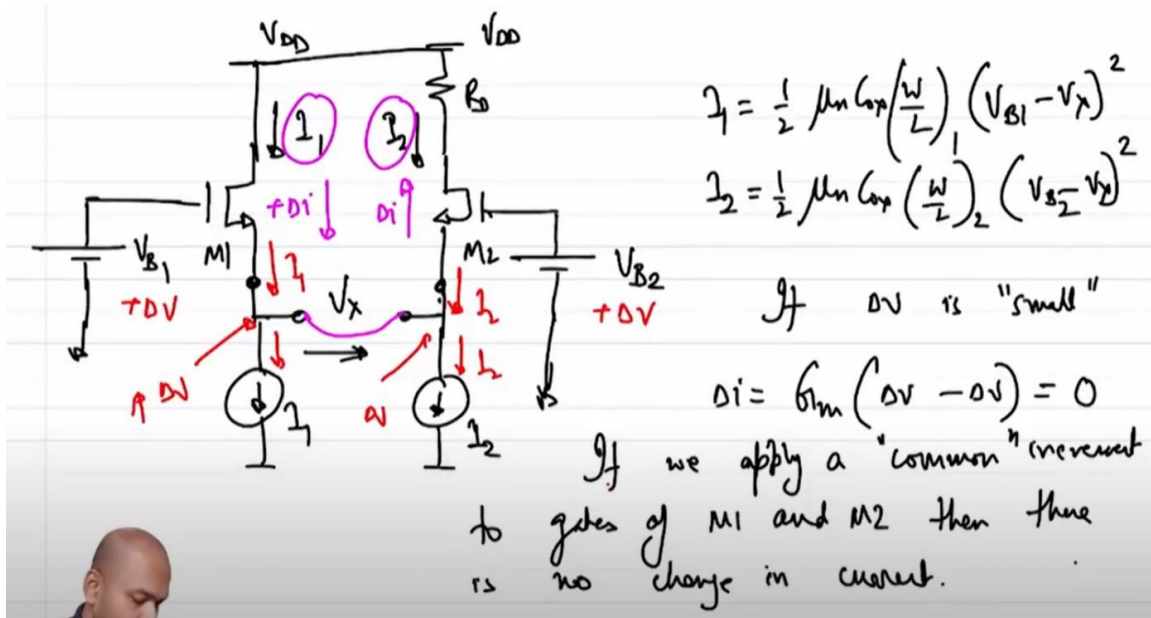 VDD
VDD
RD
I1
I2
+Di
Di
M1
M2
VB1
+DV
VB2
+DV
I1
Vx
I2
I2
DV
DV
I1
I2
I1 = 1/2 μn Cox (W/L)1 (VB1 - Vx)²
I2 = 1/2 μn Cox (W/L)2 (VB2 - Vx)²
If DV is "small"
Di = Gm (DV - DV) = 0
If we apply a "common" increment
to gates of M1 and M2 then there
is no change in current.